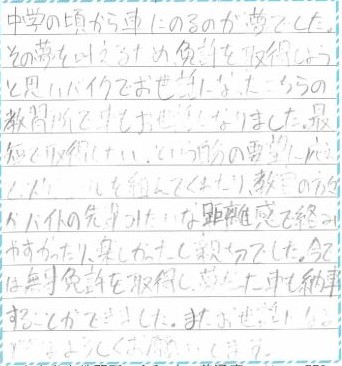 中学の頃から車にのるのが夢でした。
その夢を叶えるため免許を取得しよう
と思いバイクでお世話になったこちらの
教習所で車もお世話になりました。最
短で取得したい、という自分の要望に応え
ルを組んでくれたり、教習の
バイトの先輩みたいな距離感で
やすかったり、楽しかったし親切でした。今で
は無事免許を取得し、夢だった車も納車
することができました。またお世話になる
よろしくお願いします。